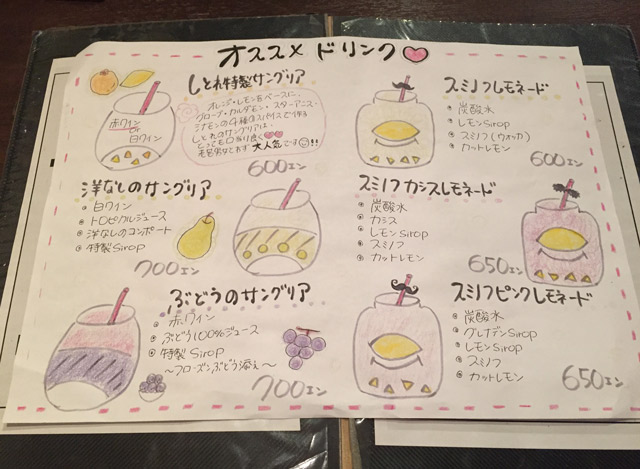 オススメ ドリンク
しとれ特製サングリア
赤ワイン
or
白ワイン
オレンジ・レモンをベースに、
クローブ・カルダモン・スターアニス・
シナモンの4種のスパイスで作る
しとれのサングリアは、
とっても口当り良く
老若男女とわず大人気です!!
600エン
洋なしのサングリア
白ワイン
トロピカルジュース
洋なしのコンポート
特製Sirop
700エン
ぶどうのサングリア
赤ワイン
ぶどう100%ジュース
特製Sirop
〜フローズンぶどう添え〜
700エン
スミノフレモネード
炭酸水
レモンSirop
スミノフ(ウォッカ)
カットレモン
600エン
スミノフカシスレモネード
炭酸水
カシス
レモンSirop
スミノフ
カットレモン
650エン
スミノフピンクレモネード
炭酸水
グレナデンSirop
レモンSirop
スミノフ
カットレモン
650エン